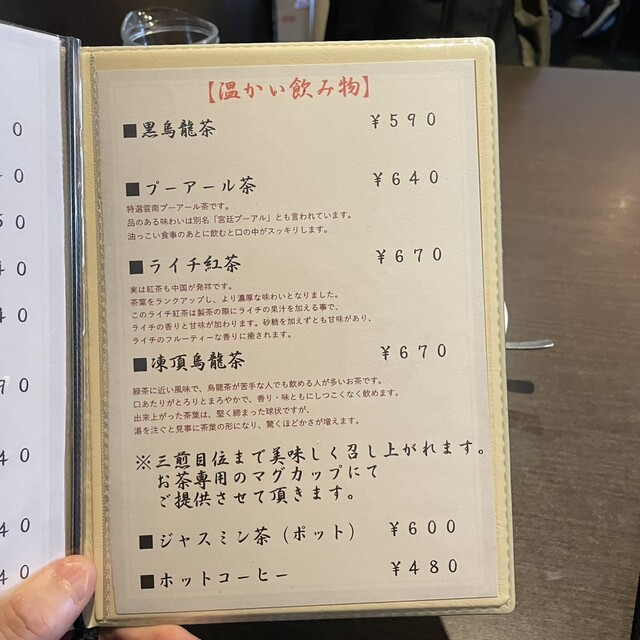 【温かい飲み物】
■黒烏龍茶 ￥５９０
■プーアール茶 ￥６４０
特選雲南プーアール茶です。
品のある味わいは別名「宮廷プーアル」とも言われています。
油っこい食事のあとに飲むと口の中がスッキリします。
■ライチ紅茶 ￥６７０
実は紅茶も中国が発祥です。
茶葉をランクアップし、より濃厚な味わいとなりました。
このライチ紅茶は製茶の際にライチの果汁を加える事で、
ライチの香りと甘味が加わります。砂糖を加えずとも甘味があり、
ライチのフルーティーな香りに癒されます。
■凍頂烏龍茶 ￥６７０
緑茶に近い風味で、烏龍茶が苦手な人でも飲める人が多いお茶です。
口あたりがとろりとまろやかで、香り・味ともにしつこくなく飲めます。
出来上がった茶葉は、堅く締まった球状ですが、
湯を注ぐと見事に茶葉の形になり、驚くほどかさが増えます。
※三煎目位まで美味しく召し上がれます。
お茶専用のマグカップにて
ご提供させて頂きます。
■ジャスミン茶（ポット） ￥６００
■ホットコーヒー ￥４８０
０
０
５０
４０
４０
９０
４０
４０
４０